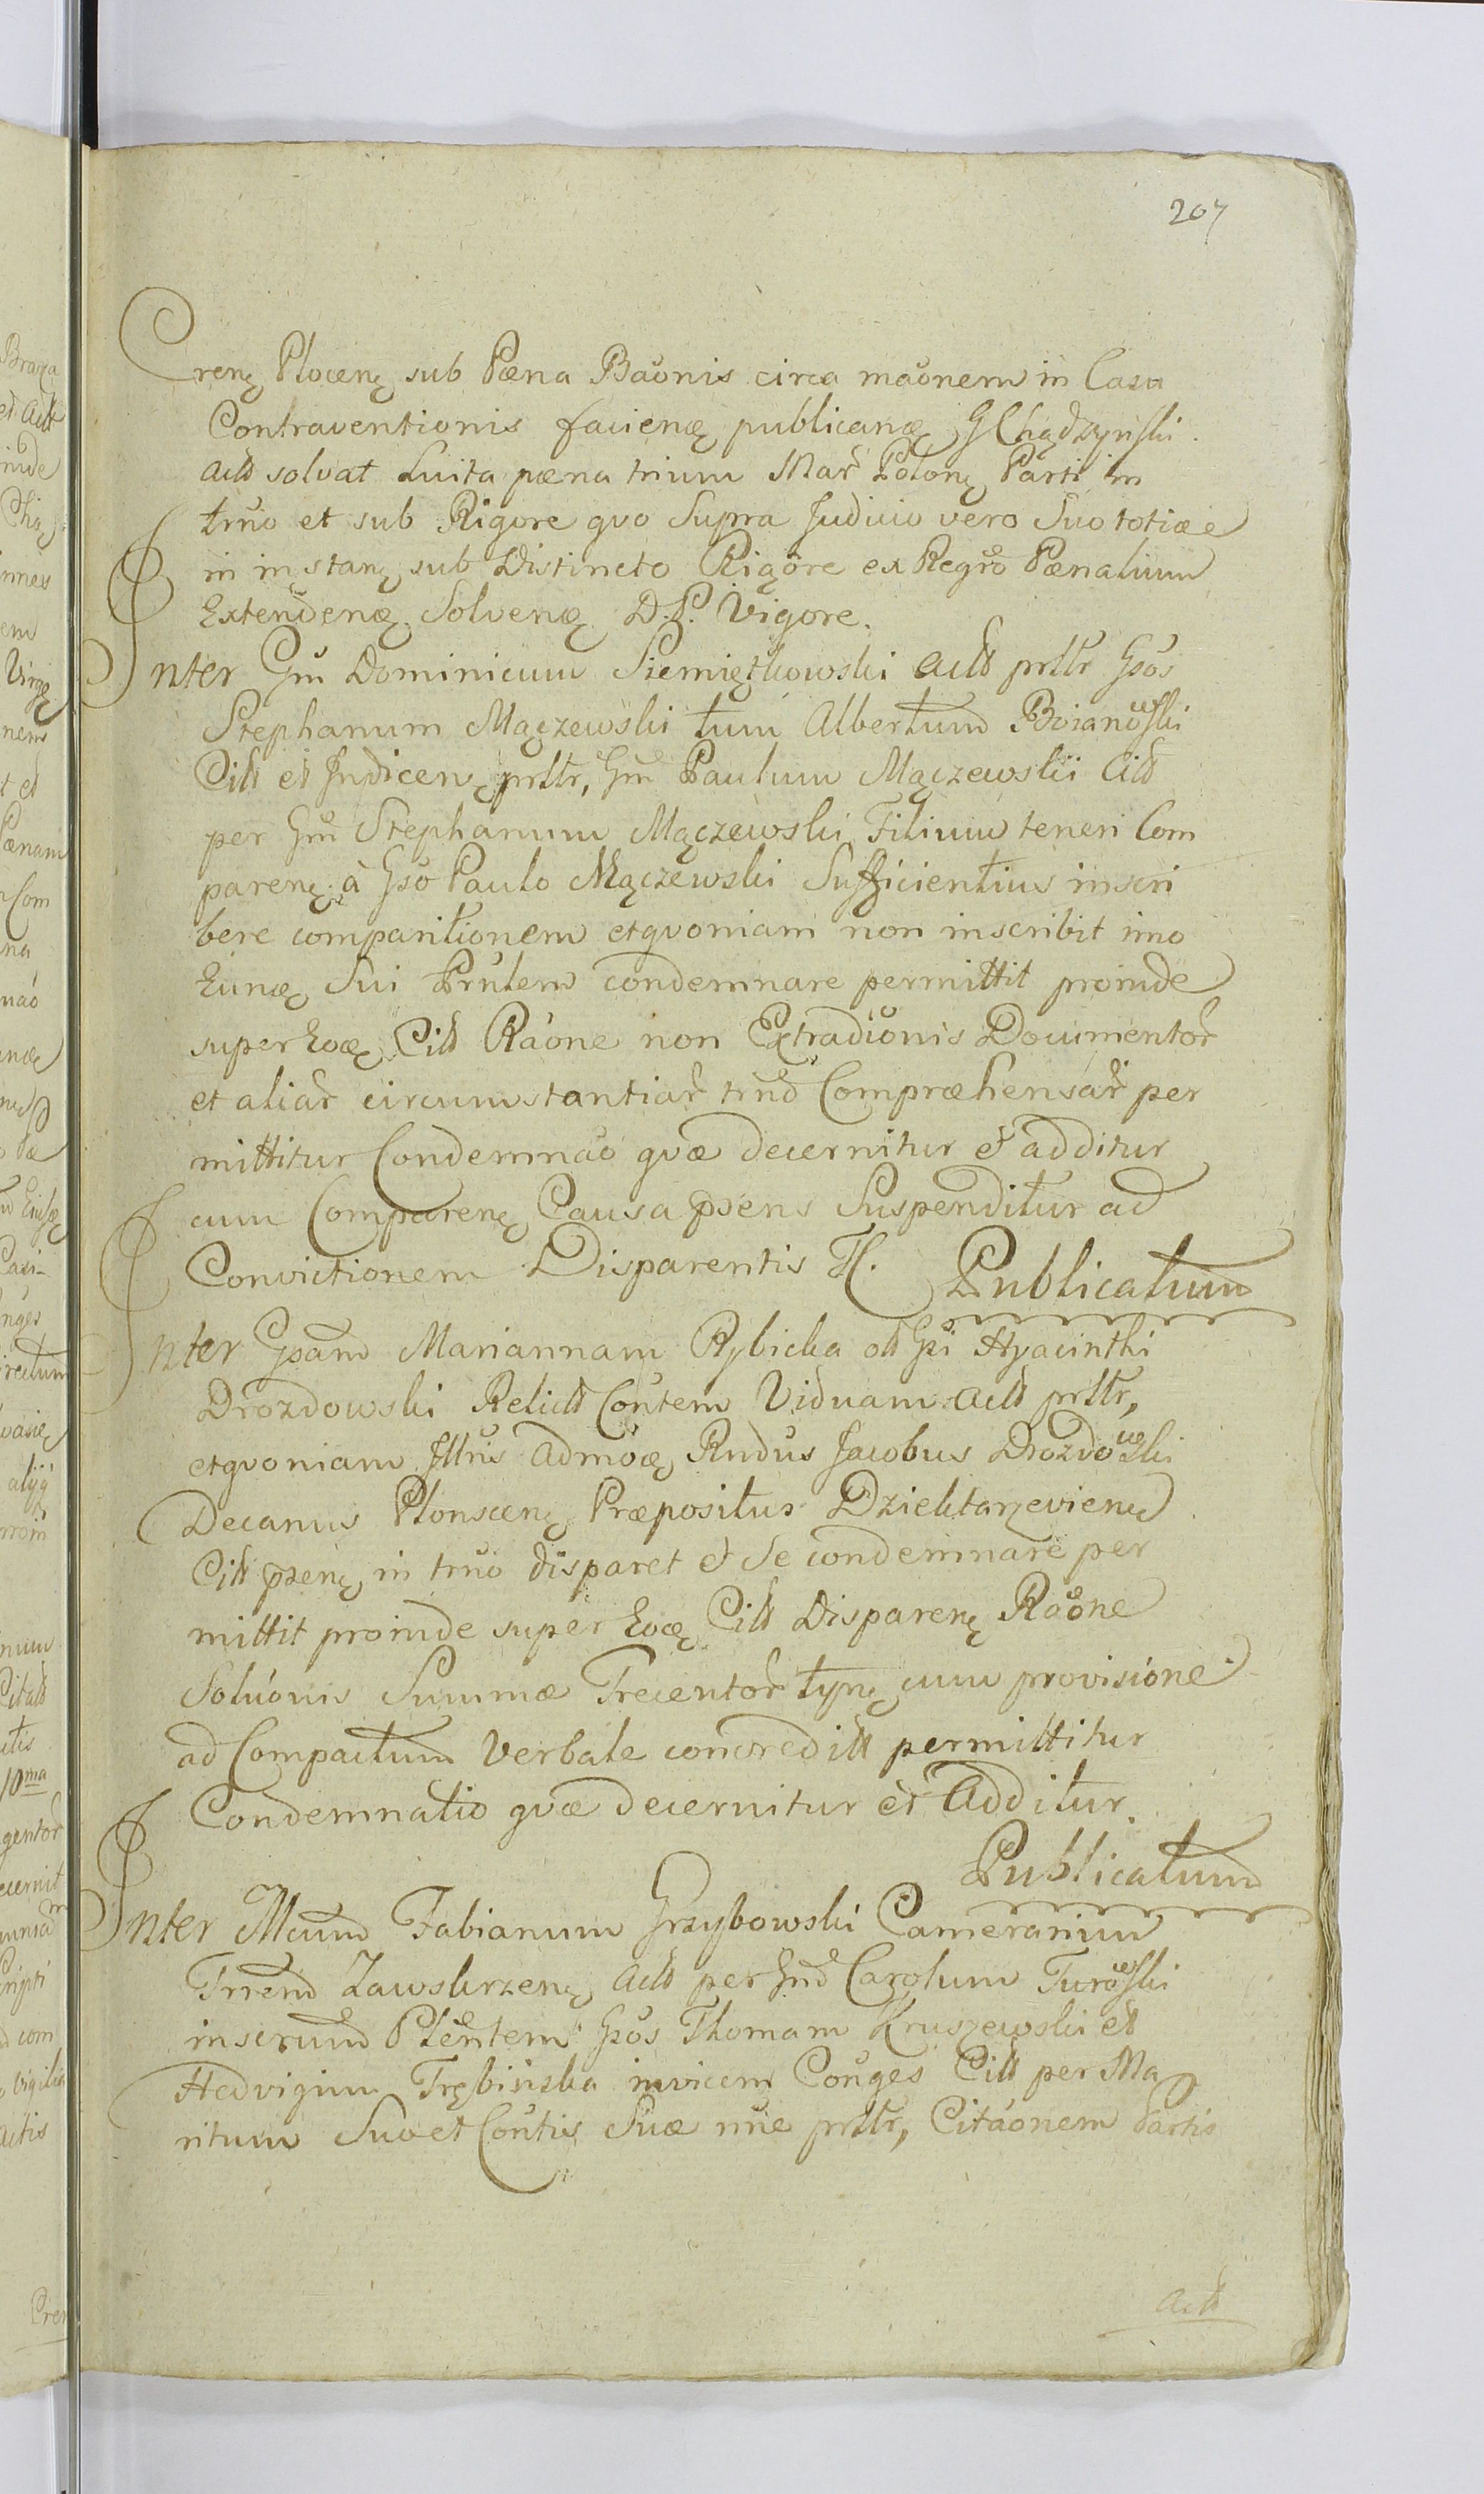 207
Crenę Plocenę sub Pæna Baõnis circa maõnem in Casu
Contraventionis facienę publicanę G Chądzyński
Actt solvat Luita pæna trium Mar Polonę Parti in
trño et sub Rigore qvo Supra Judicio vero Suo totiæ
in instanę sub Distincto Rigore ex Regrõ Pænalium
Extendenę Solvenę D. P. Vigore.
Inter Gm̃ Dominicum Siemiętkowski Actt prttr Gsõs
Stephanum Mączewski tum Albertum Boianowski
Citt et Indicenę prttr, Gm̃ Paulum Mączewskii Citt
per Gm̃ Stephanum Mączewski Filium teneri Com
parenę à Gsõ Paulo Mączewski Sufficientius inscri
bere comparitionem etqvoniam non inscribit imo
Eunę Sui Prñtem condemnare permittit proinde
super Eoę Citt Raõne non Extradiõnis Documentor̃
et aliar̃ circumstantiar̃ trño Compræhensar̃ per
mittitur Condemnaõ qvæ decernitur et additur
cum Comparenę Causa psens Suspenditur ad
Convictionem Disparentis H. Publicatum
Inter Gsam Mariannam Rybicka ott Gsi Hyacinthi
Drozdowski Relictt Coñtem Viduam Actt prttr,
etqvoniam Illr̃is Admõę Rndus Jacobus Drozdowski
Decanus Plonscenę Præpositus Dziektarzevienę
Citt psenę in trño disparet et Se condemnare per
mittit proinde super Eoę Citt Disparenę Raõne
Soluõnis Summæ Trecentor̃ tynę cum provisione
ad Compactum Verbale concreditt permittitur
Condemnatio qvæ decernitur et Additur.
Publicatum
Inter Mcum Fabianum Grzybowski Camerarium
Trrem Zawskrzenę Actt per Gm̃ Carolum Turowski
inscrum Plẽntem Gsõs Thomam Kruszewski et
Hedvigim Trębińska invicem Coñges Citt per Ma
ritum Suo et Coñtis Suæ nñe prttr, Citaõnem Partis
Actt